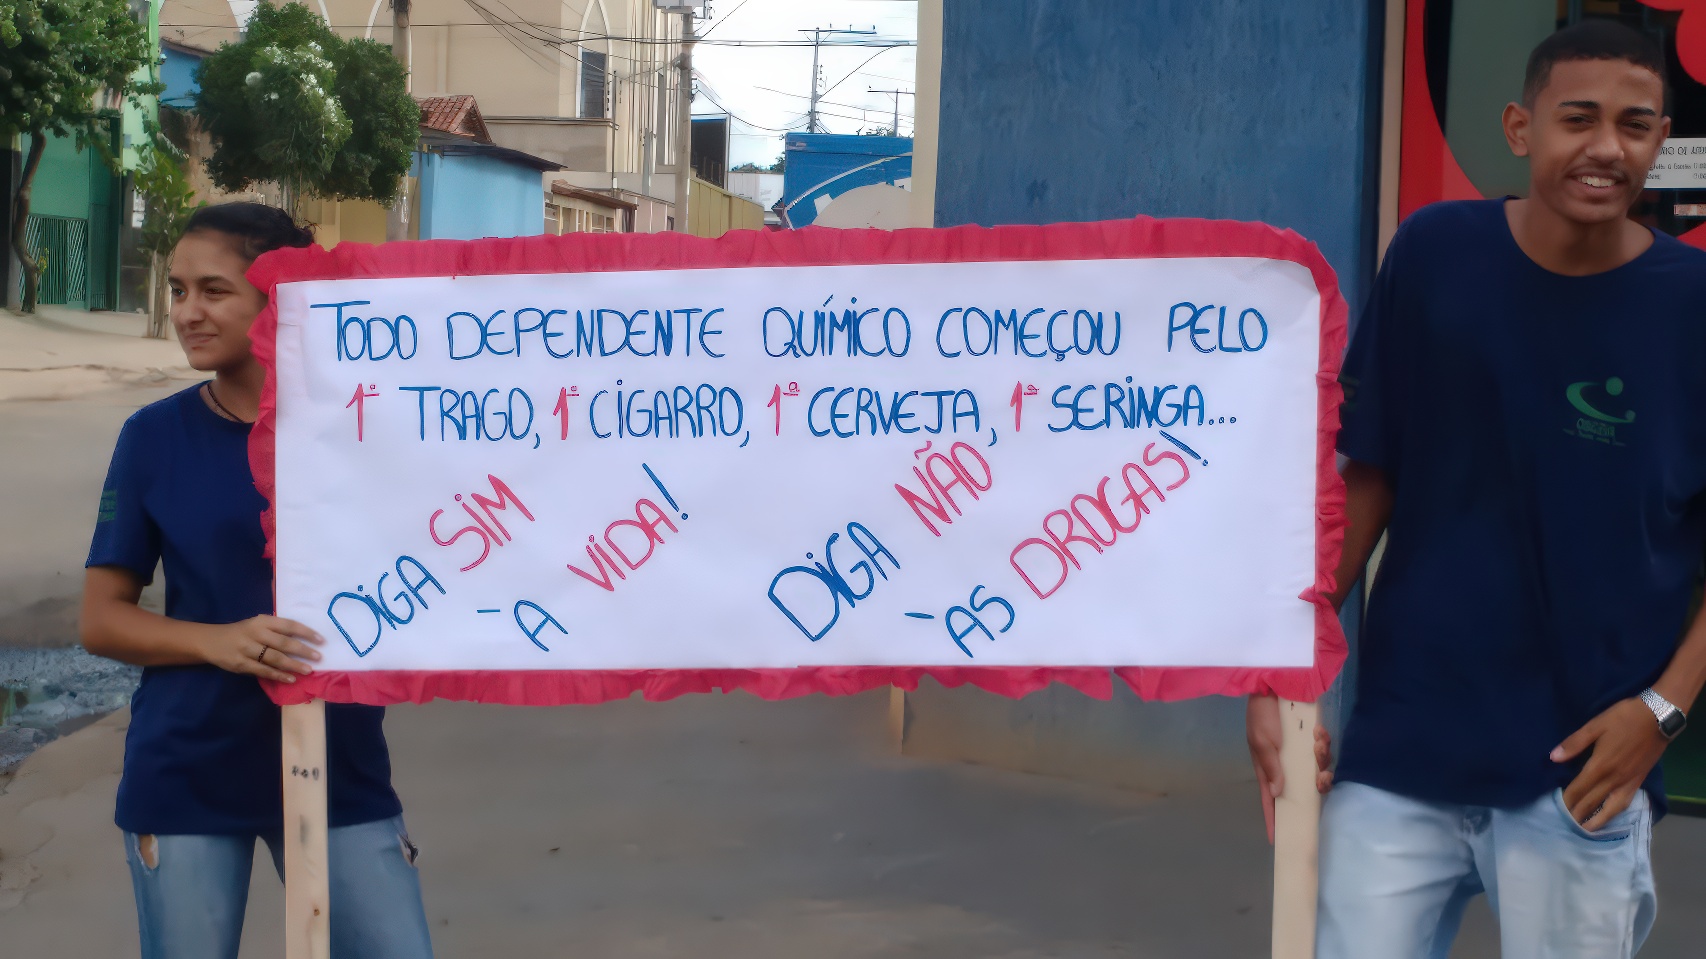 TODO DEPENDENTE QUÍMICO COMEÇOU PELO
1º TRAGO, 1º CIGARRO, 1ª CERVEJA, 1ª SERINGA...
DIGA SIM
À VIDA!
DIGA NÃO
ÀS DROGAS!